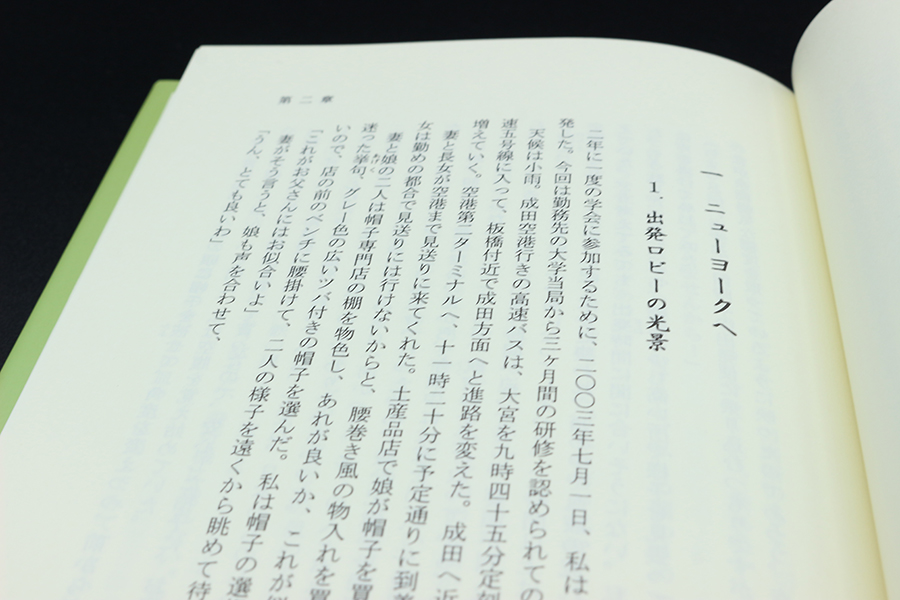 第二章
一 ニューヨークへ
1. 出発ロビーの光景
二年に一度の学会に参加するために、二〇〇三年七月一日、私は
発した。今回は勤務先の大学当局から三ヶ月間の研修を認められての
天候は小雨。成田空港行きの高速バスは、大宮を九時四十五分定刻
速五号線に入って、板橋付近で成田方面へと進路を変えた。成田へ近
増えていく。空港第二ターミナルへ、十一時二十分に予定通りに到着
妻と長女が空港まで見送りに来てくれた。土産品店で娘が帽子を買
女は勤めの都合で見送りには行けないからと、腰巻き風の物入れを買
妻と娘の二人は帽子専門店の棚を物色し、あれが良いか、これが
迷った挙句、グレー色の広いツバ付きの帽子を選んだ。私は帽子の選
いので、店の前のベンチに腰掛けて、二人の様子を遠くから眺めて待
「これがお父さんにはお似合いよ」
妻がそう言うと、娘も声を合わせて、
「うん、とても良いわ」